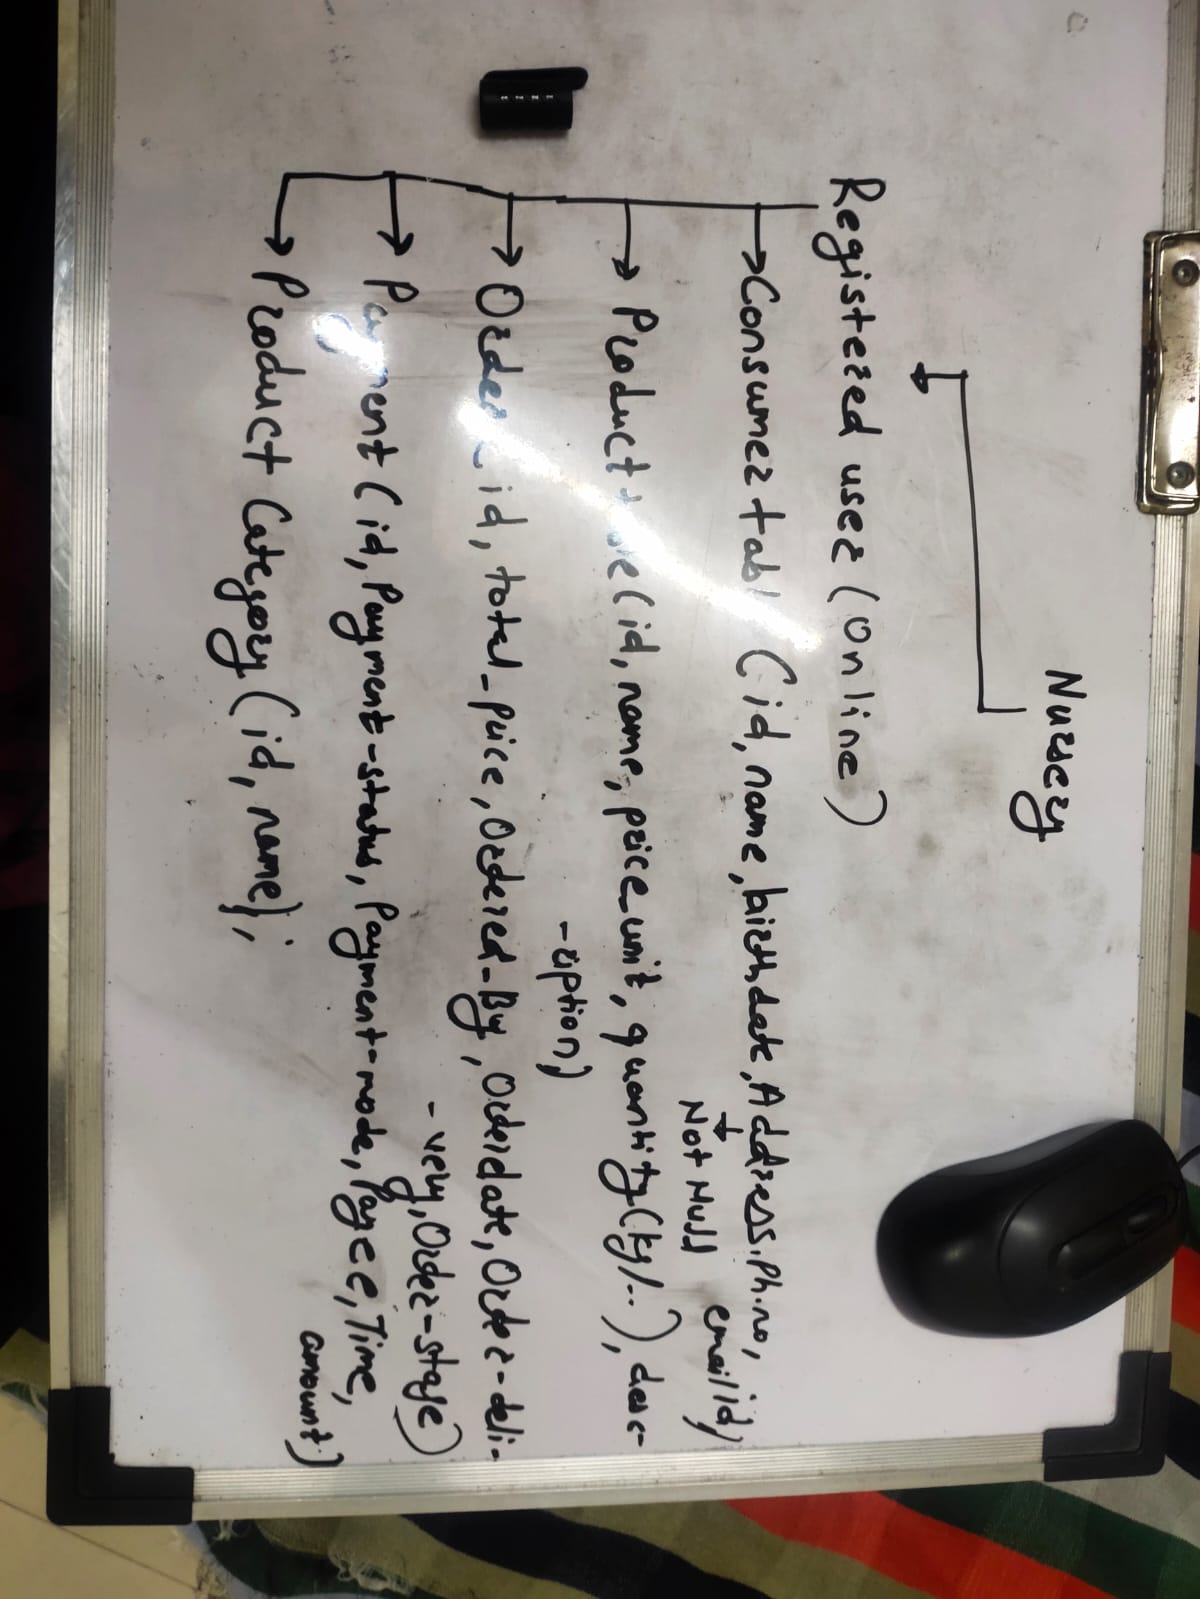 Nursery
Registered user (Online)
Consumer tabl (id, name, birthdate, Address, Ph.no,
email id)
Not Null
Product (id, name, price_unit, quantity (kg/..), desc-
-ription)
Order id, total_price, Ordered_By, Orderdate, Order-deli-
-very, Order-stage)
Payment (id, Payment-status, Payment-mode, Payee, Time,
amount)
Product Category (id, name);